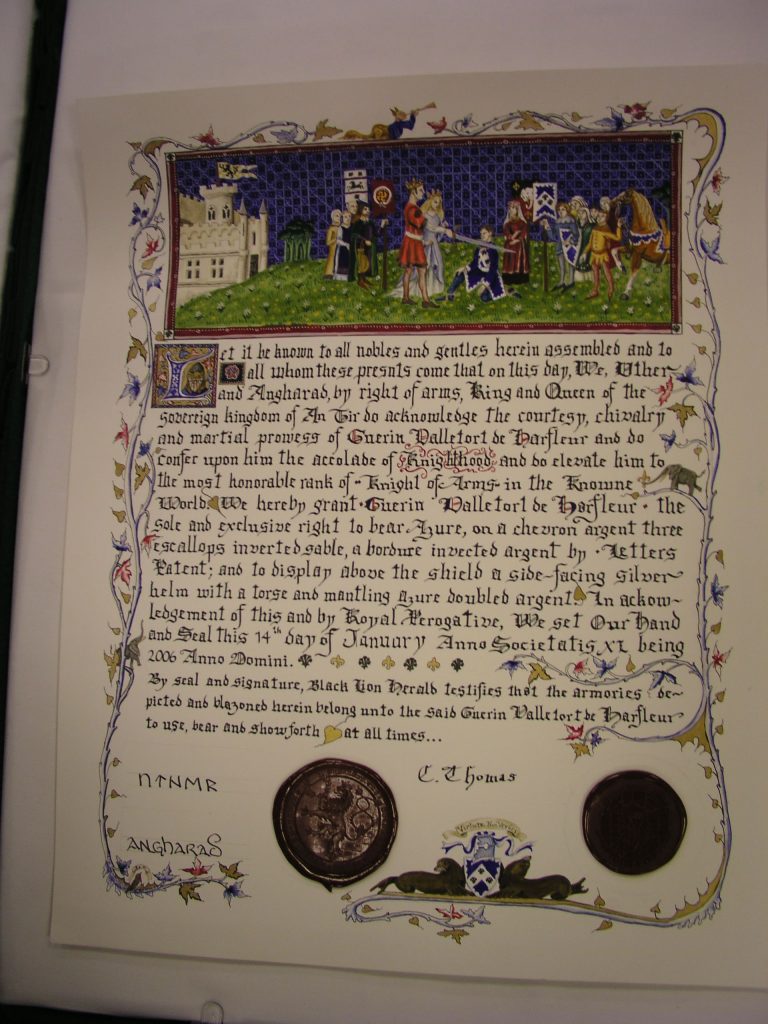 Let it be known to all nobles and gentles herein assembled and to
all whom these presnts come that on this day, We, Uther
and Angharad, by right of arms, King and Queen of the
Sovereign kingdom of An Tir do acknowledge the courtesy, chivalry
and martial prowess of Guerin Valletort de Harfleur and do
confer upon him the accolade of Knighthood and do elevate him to
the most honorable rank of · Knight of Arms · in the Knowne
World. We hereby grant · Guerin Valletort de Harfleur · the
sole and exclusive right to bear Azure, on a chevron argent three
escallops inverted sable, a bordure invected argent by · Letters
Patent; and to display above the shield a side-facing silver
helm with a torse and mantling azure doubled argent. In ackow-
ledgement of this and by Royal Perogative, We set Our Hand
and Seal this 14th day of January Anno Societatis XL being
2006 Anno Domini.
By seal and signature, Black Lion Herald testifies that the armories de-
picted and blazoned herein belong unto the said Guerin Valletort de Harfleur
to use, bear and show forth at all times...
C. Thomas
ANGHARAD